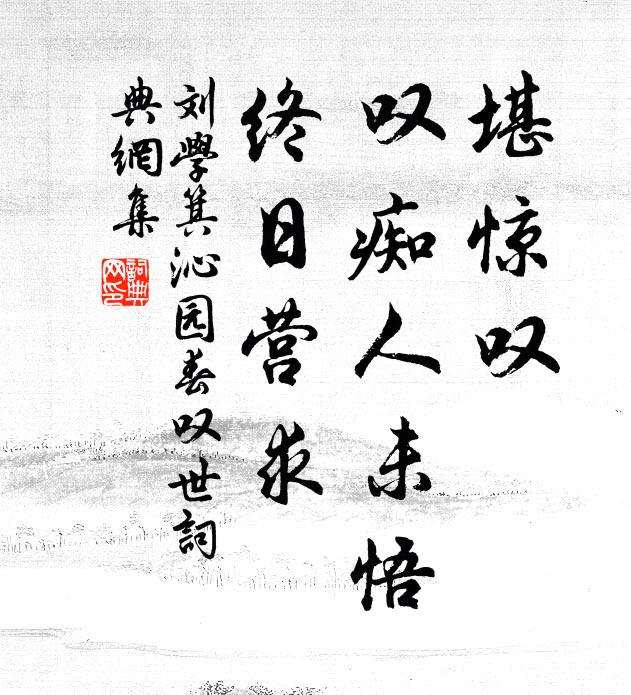 堪惊叹
叹痴人未悟
终日营求
刘學箕沁园春叹世詞
典網集
詞典
网印